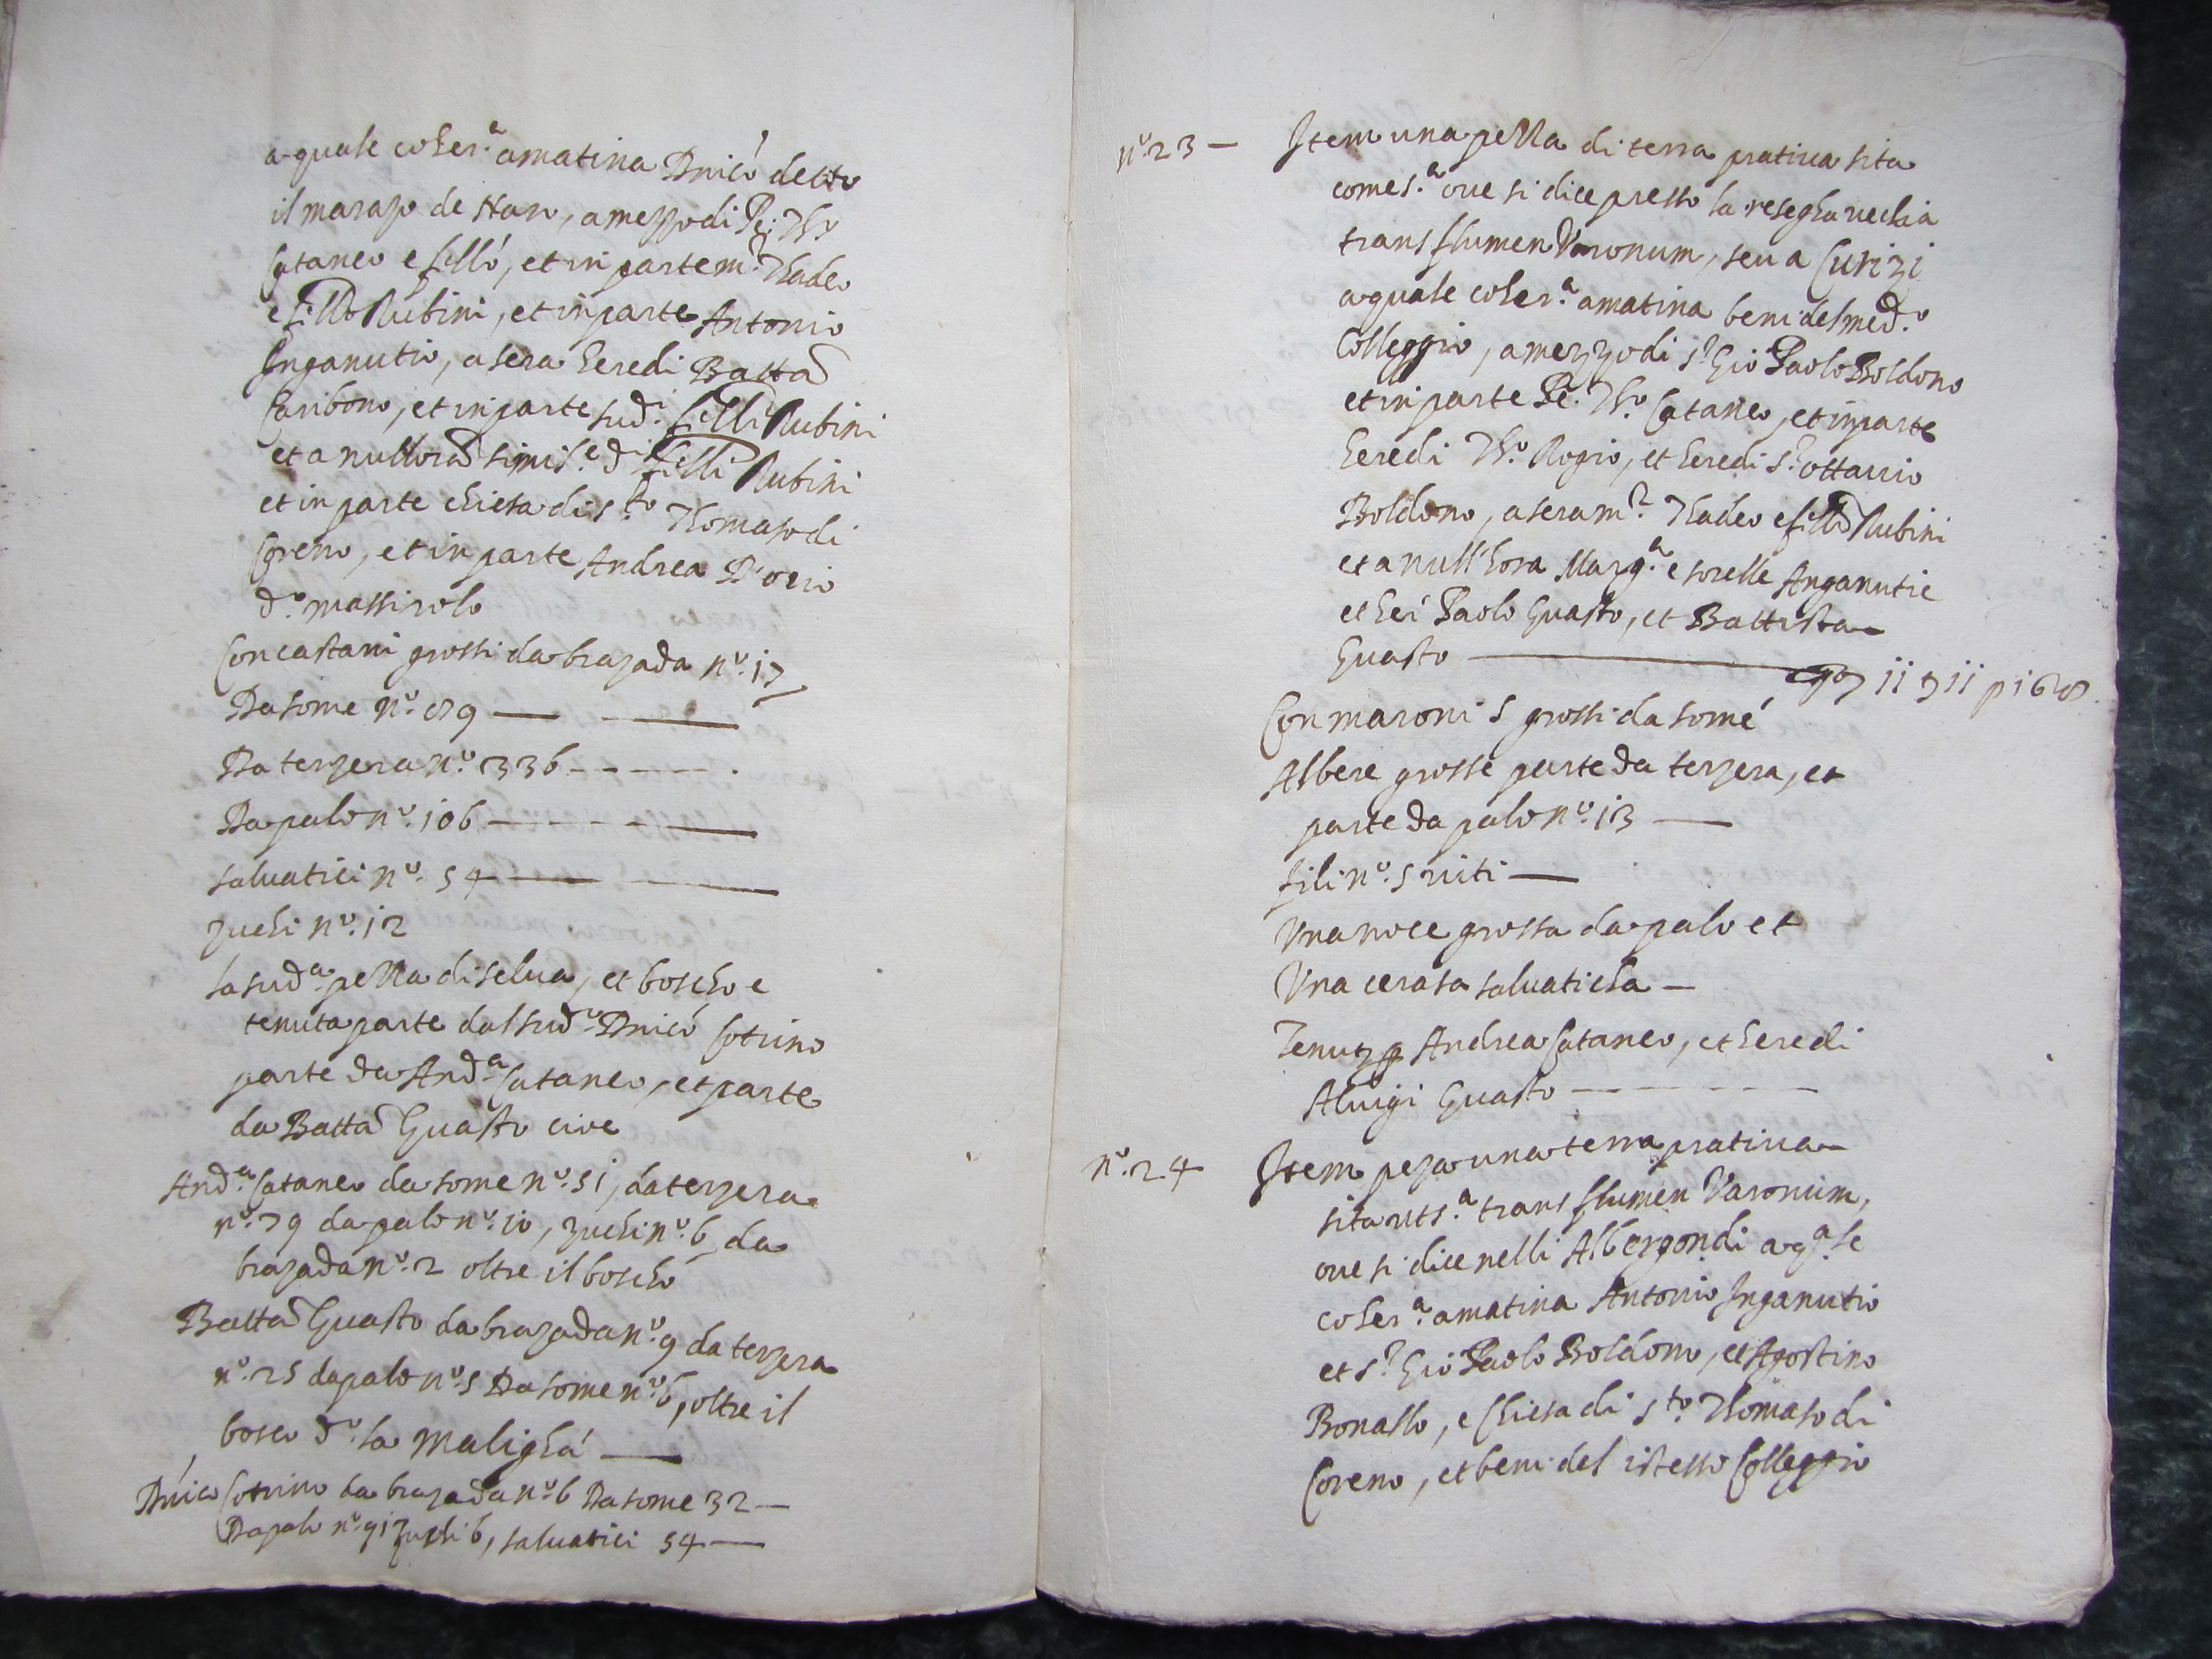 a quale coher.ᵃ a matina Dnicó detto
il marazo de Nan, a mezzo di Pê. Thº
Cataneo e fillí, et in parte m.ʳ Thadeo
e fillo Rubini, et in parte Antonio
Inganutio, a sera heredi Batta
Caribono, et in parte sud.ⁱ filli Rubini
et a nullora simil.ᵉ d.ⁱ filli Rubini
et in parte chiesa di s.ᵗᵒ Thomaso di
Coreno, et in parte Andrea D'orio
d.º massirolo
Con castani grossi da brazada nº. 17
Da some nº.
Da terzera nº. 336
Da palo nº. 106
salvatici nº. 54
zuchi nº. 12
la sud.ᵃ pezza di selva, et boscho e
tenuta parte dal sud.º Dnicó Cotrino
parte da And.ᵃ Cataneo, et parte
da Batta Guasto cioe
And.ᵃ Cataneo da some nº. 51, da terzera
nº. 79 da palo nº. 10, zuchi nº. 6 da
brazada nº. 2 oltre il boschó
Batta Guasto da brazada nº. 9 da terzera
nº. 25 da palo nº. 5 Da some nº. 6, oltre il
bosco d.º la Malighá
Dnico Cotrino da brazada nº. 6 Da some 32
Da palo nº. 91 zuchi 6, salvatici 54
nº. 23 – Item una pezza di terra prativa sita
come s.ᵃ ove si dice presso la resegha vechia
trans flumen Varonum, seu a Curizi
a quale coher.ᵃ a matina beni del med.º
Colleggio, a mezzo di s.ʳ Gio Paolo Boldono
et in parte Pê. Thº. Cataneo, et in parte
heredi Thº. Rogio, et heredi s.ʳ Ottavio
Boldono, a sera m.ʳ Thadeo e fillo Rubini
et a null'hora Marg.ᵃ e sorelle Anganutie
et heri Paolo Guasto, et Battista
Guasto
Con maroni 5 grossi da somé
Albere grosse parte da terzera, et
parte da palo nº. 13
fili nº. 5 viti
Una noce grossa da palo et
Una cerasa salvaticha
Tenut Andrea Cataneo, et heredi
Aluigi Guasto
nº. 24 Item peza una terra prativa
sita ut s.ᵃ trans flumen Varonum,
ove si dice nelli Albergondi a q.ᵃle
coher.ᵃ a matina Antonio Inganutio
et s.ʳ Gio Paolo Boldono, et Agostino
Bonasso, e Chiesa di s.ᵗᵒ Thomaso di
Coreno, et beni del istesso Colleggio